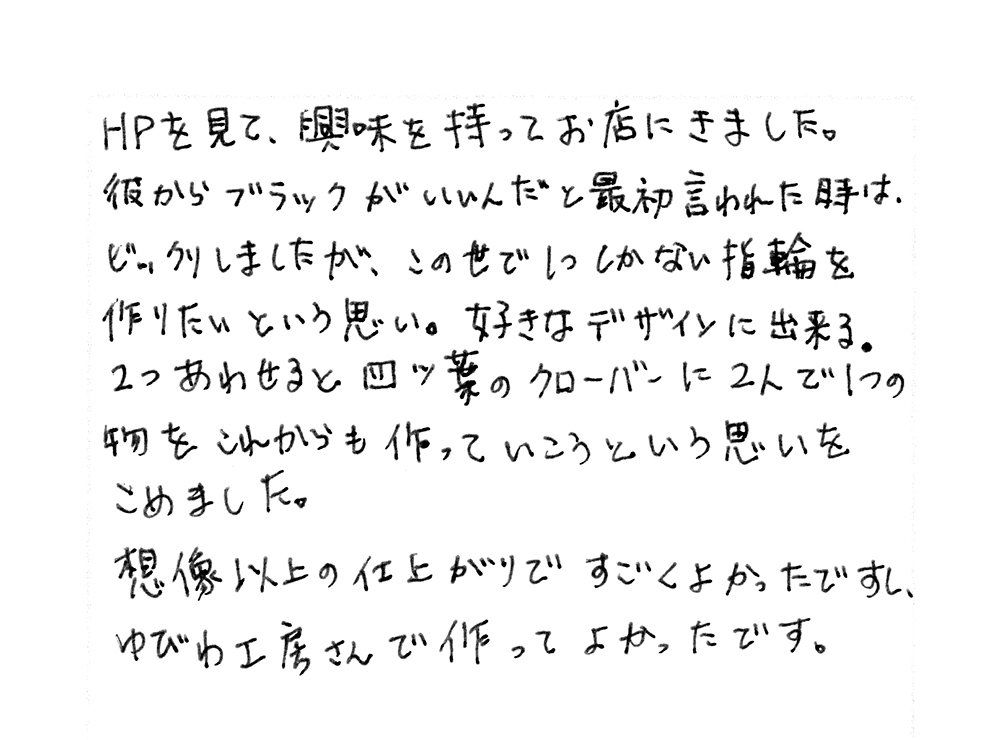 HPを見て、興味を持ってお店にきました。
彼からブラックがいいんだと最初言われた時は、
ビックリしましたが、この世で1つしかない指輪を
作りたいという思い。好きなデザインに出来る。
2つあわせると四ツ葉のクローバーに2人で1つの
物をこれからも作っていこうという思いを
こめました。
想像以上の仕上がりですごくよかったですし、
ゆびわ工房さんで作ってよかったです。